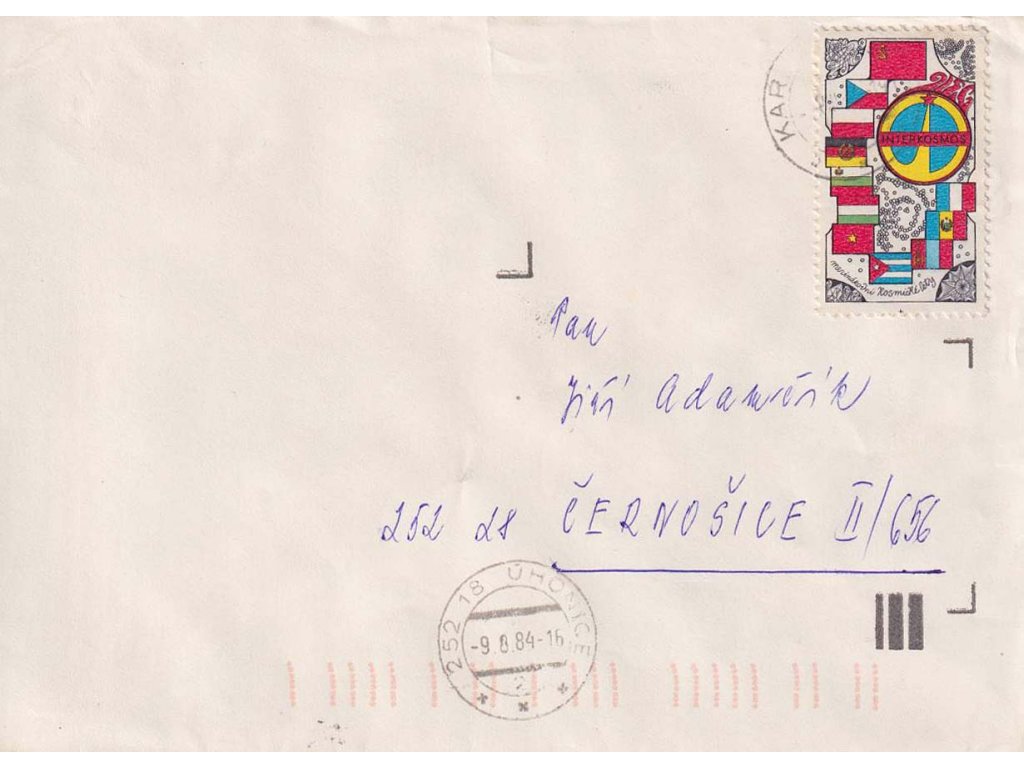 KAR
INTERKOSMOS
mezinárodní kosmické lety
Pan
Jiří Adamčík
252 28 ČERNOŠICE II/656
252 18 ÚHONICE
-9.8.84-16